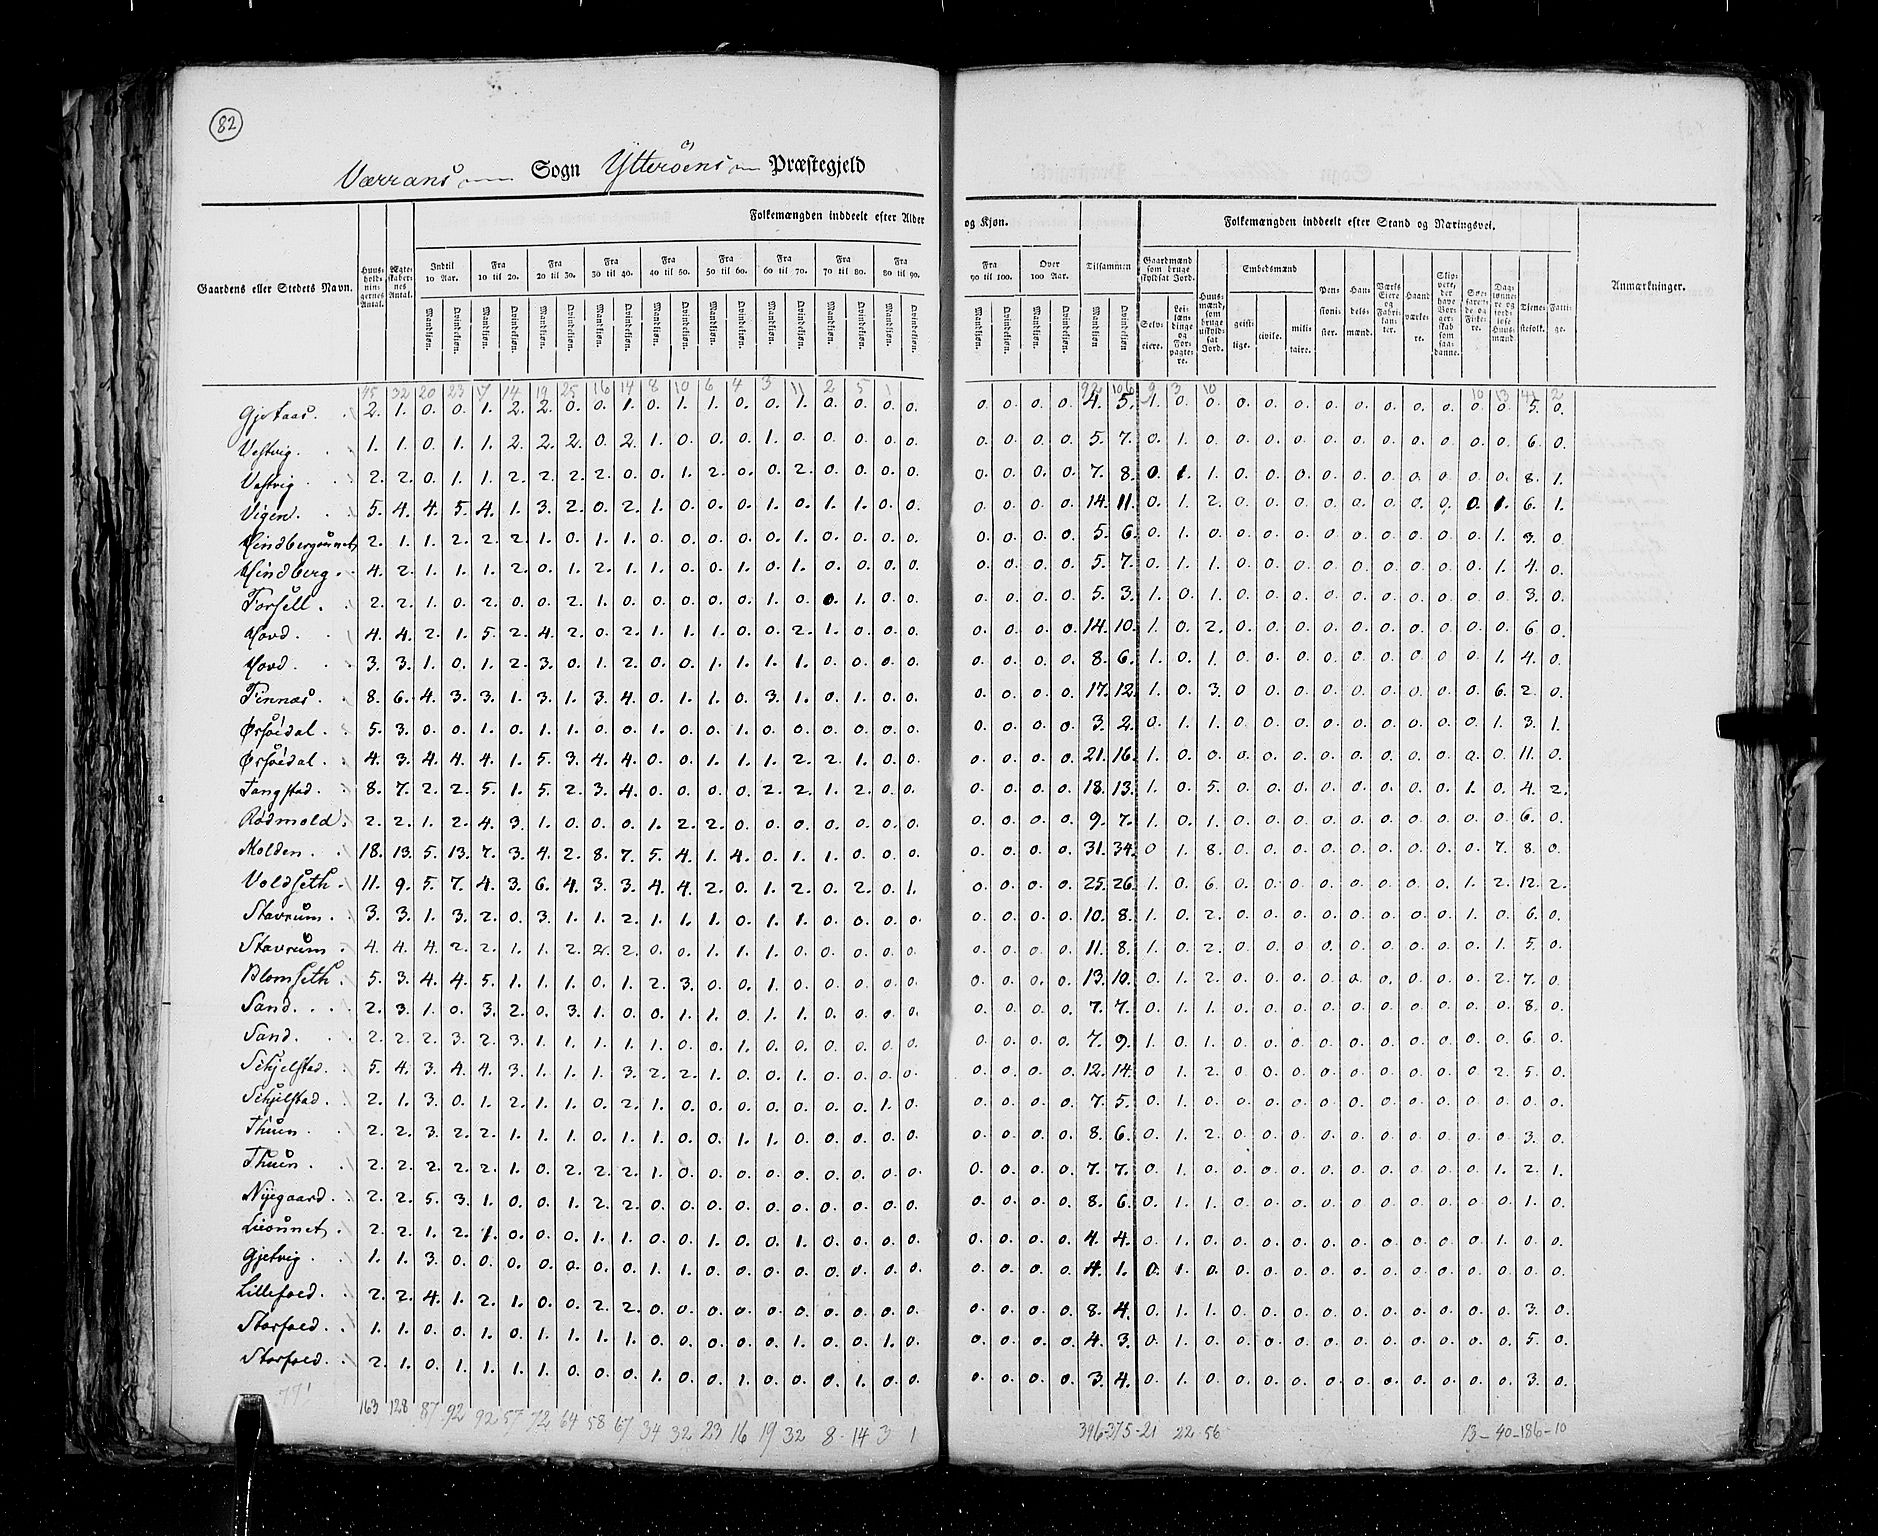 82
Værrans Sogn Ytterøens Præstegjeld
Folkemængden inddeelt efter Alder og Kjøn.
Folkemængden inddeelt efter Stand og Næringsvei.
Gaardens eller Stedets Navn.
Huus-holdningernes Antal.
Ægteskabernes Antal.
Indtil 10 Aar.
Fra 10 til 20.
Fra 20 til 30.
Fra 30 til 40.
Fra 40 til 50.
Fra 50 til 60.
Fra 60 til 70.
Fra 70 til 80.
Fra 80 til 90.
Fra 90 til 100.
Over 100 Aar.
Tilsammen
Mandkjøn. Qvindekjøn.
Gaardmænd som bruge skyldsat Jord.
Selveiere.
Leilændinge og Forpagtere.
Huusmænd, som bruge uskyldsat Jord.
Embedsmænd
geistlige. civile. militaire.
Pensionister.
Handelsmænd.
Værks Eiere og Fabrikanter.
Haandværkere.
Tjenestefolk.
Fattige.
Anmærkninger.
45 32 20 23 17 14 19 25 16 14 8 10 6 4 3 11 2 5 1 92 106 9 3 10 10 13 41 2
Gjetaas. 2. 1. 0. 0. 1. 2. 2. 0. 0. 1. 0. 1. 1. 0. 0. 1. 0. 0. 0. 0. 0. 0. 0. 0. 4. 5. 1. 0. 0. 0. 0. 0. 0. 0. 0. 0. 0. 0. 0. 5. 0.
Vestvig. 1. 1. 0. 1. 1. 2. 2. 2. 0. 2. 1. 0. 0. 0. 1. 0. 0. 0. 0. 0. 0. 0. 0. 0. 5. 7. 0. 1. 0. 0. 0. 0. 0. 0. 0. 0. 0. 0. 0. 6. 0.
Vestvig 2. 2. 0. 1. 1. 2. 2. 2. 2. 0. 0. 1. 2. 0. 0. 2. 0. 0. 0. 0. 0. 0. 0. 0. 7. 8. 0. 1. 1. 0. 0. 0. 0. 0. 0. 0. 0. 0. 0. 8. 1.
Vigen. 5. 4. 4. 5. 4. 1. 3. 2. 0. 2. 1. 0. 0. 0. 1. 0. 1. 1. 0. 0. 0. 0. 0. 0. 14. 11. 0. 1. 2. 0. 0. 0. 0. 0. 0. 0. 0. 0. 1. 6. 1.
Hindbergaunet 2. 1. 1. 2. 2. 2. 1. 0. 1. 1. 0. 0. 0. 0. 0. 1. 0. 0. 0. 0. 0. 0. 0. 0. 5. 6. 0. 1. 0. 0. 0. 0. 0. 0. 0. 0. 0. 0. 1. 3. 0.
Hindberg. 4. 2. 1. 1. 1. 2. 0. 1. 2. 1. 1. 0. 0. 1. 0. 1. 0. 0. 0. 0. 0. 0. 0. 0. 5. 7. 0. 1. 1. 0. 0. 0. 0. 0. 0. 0. 0. 0. 1. 4. 0.
Forsell. 2. 2. 1. 0. 2. 0. 0. 2. 1. 0. 0. 0. 0. 0. 1. 0. 0. 1. 0. 0. 0. 0. 0. 0. 5. 3. 1. 0. 1. 0. 0. 0. 0. 0. 0. 0. 0. 0. 0. 3. 0.
Hovd. 4. 4. 2. 1. 5. 2. 4. 2. 0. 2. 1. 1. 1. 0. 0. 2. 1. 0. 0. 0. 0. 0. 0. 0. 14. 10. 1. 0. 2. 0. 0. 0. 0. 0. 0. 0. 0. 0. 0. 6. 0.
Hovd. 3. 3. 1. 0. 1. 2. 3. 0. 1. 2. 0. 0. 1. 1. 1. 1. 0. 0. 0. 0. 0. 0. 0. 0. 8. 6. 1. 0. 1. 0. 0. 0. 0. 0. 0. 0. 0. 0. 1. 4. 0.
Finnæs. 8. 6. 4. 3. 3. 1. 3. 1. 3. 4. 0. 1. 1. 0. 3. 1. 0. 1. 0. 0. 0. 0. 0. 0. 17. 12. 1. 0. 3. 0. 0. 0. 0. 0. 0. 0. 0. 0. 6. 2. 0.
Ørsöidal. 5. 3. 0. 0. 1. 0. 1. 1. 0. 0. 1. 0. 0. 1. 0. 0. 0. 0. 0. 0. 0. 0. 0. 0. 3. 2. 0. 1. 1. 0. 0. 0. 0. 0. 0. 0. 0. 0. 1. 3. 1.
Ørsöidal. 4. 3. 4. 4. 4. 1. 5. 3. 4. 4. 0. 0. 1. 1. 1. 2. 2. 1. 0. 0. 0. 0. 0. 0. 21. 16. 1. 0. 0. 0. 0. 0. 0. 0. 0. 0. 0. 0. 0. 11. 0.
Tangstad. 8. 7. 2. 2. 5. 1. 5. 2. 3. 4. 0. 0. 0. 0. 2. 2. 1. 2. 0. 0. 0. 0. 0. 0. 18. 13. 1. 0. 5. 0. 0. 0. 0. 0. 0. 0. 0. 1. 0. 4. 2.
Rødmold. 2. 2. 1. 2. 4. 3. 1. 0. 0. 0. 1. 2. 2. 0. 0. 0. 0. 0. 0. 0. 0. 0. 0. 0. 9. 7. 1. 0. 1. 0. 0. 0. 0. 0. 0. 0. 0. 0. 0. 6. 0.
Molden. 18. 13. 5. 13. 7. 3. 4. 2. 8. 7. 5. 4. 1. 4. 0. 1. 1. 0. 0. 0. 0. 0. 0. 0. 31. 34. 0. 1. 8. 0. 0. 0. 0. 0. 0. 0. 0. 0. 7. 8. 0.
Voldseth. 11. 9. 5. 7. 4. 3. 6. 4. 3. 3. 4. 4. 2. 0. 1. 2. 0. 2. 0. 1. 0. 0. 0. 0. 25. 26. 1. 0. 6. 0. 0. 0. 0. 0. 0. 0. 0. 1. 2. 12. 2.
Stavrum. 3. 3. 1. 3. 2. 0. 3. 1. 1. 2. 1. 1. 1. 0. 1. 1. 0. 0. 0. 0. 0. 0. 0. 0. 10. 8. 1. 0. 2. 0. 0. 0. 0. 0. 0. 0. 0. 1. 0. 6. 0.
Stavrum. 4. 4. 4. 2. 2. 1. 1. 2. 2. 2. 0. 0. 1. 1. 1. 0. 0. 0. 0. 0. 0. 0. 0. 0. 11. 8. 1. 0. 2. 0. 0. 0. 0. 0. 0. 0. 0. 0. 1. 5. 0.
Blomseth. 5. 3. 4. 4. 5. 1. 1. 1. 0. 1. 2. 3. 0. 0. 1. 0. 0. 0. 0. 0. 0. 0. 0. 0. 13. 10. 0. 1. 2. 0. 0. 0. 0. 0. 0. 0. 0. 0. 2. 7. 0.
Sand. 2. 3. 1. 0. 3. 2. 0. 3. 1. 0. 0. 1. 1. 0. 1. 1. 0. 0. 0. 0. 0. 0. 0. 0. 7. 7. 0. 1. 1. 0. 0. 0. 0. 0. 0. 0. 0. 0. 0. 8. 0.
Sand. 2. 2. 2. 3. 2. 3. 1. 1. 1. 1. 1. 0. 0. 1. 0. 0. 0. 0. 0. 0. 0. 0. 0. 0. 7. 9. 1. 0. 1. 0. 0. 0. 0. 0. 0. 0. 0. 0. 0. 6. 0.
Schjelstad. 5. 4. 3. 4. 4. 3. 1. 1. 1. 3. 2. 2. 1. 0. 0. 1. 0. 0. 0. 0. 0. 0. 0. 0. 12. 14. 0. 1. 2. 0. 0. 0. 0. 0. 0. 0. 0. 0. 2. 5. 0.
Schjelstad. 2. 1. 3. 0. 1. 2. 1. 1. 0. 2. 1. 0. 0. 0. 0. 0. 0. 0. 1. 0. 0. 0. 0. 0. 7. 5. 0. 1. 0. 0. 0. 0. 0. 0. 0. 0. 0. 0. 0. 0. 0.
Thuen. 2. 2. 3. 2. 2. 1. 1. 1. 0. 1. 1. 0. 0. 1. 1. 0. 0. 0. 0. 0. 0. 0. 0. 0. 8. 6. 0. 1. 2. 0. 0. 0. 0. 0. 0. 0. 0. 0. 0. 3. 0.
Thuen. 2. 2. 2. 2. 2. 1. 0. 2. 2. 2. 1. 0. 0. 0. 0. 0. 0. 0. 0. 0. 0. 0. 0. 0. 7. 7. 0. 1. 0. 0. 0. 0. 0. 0. 0. 0. 0. 0. 1. 2. 1.
Nygaard. 2. 2. 5. 3. 1. 0. 0. 1. 2. 2. 0. 0. 0. 0. 0. 0. 0. 0. 0. 0. 0. 0. 0. 0. 8. 6. 0. 1. 1. 0. 0. 0. 0. 0. 0. 0. 0. 0. 0. 1. 0.
Lieunet. 2. 2. 1. 2. 1. 0. 0. 0. 1. 1. 0. 0. 1. 0. 0. 1. 0. 0. 0. 0. 0. 0. 0. 0. 4. 4. 0. 1. 0. 0. 0. 0. 0. 0. 0. 0. 0. 0. 1. 0. 0.
Gjetvig. 1. 1. 3. 0. 0. 0. 0. 0. 0. 0. 1. 1. 0. 0. 0. 0. 0. 0. 0. 0. 0. 0. 0. 0. 4. 1. 0. 1. 0. 0. 0. 0. 0. 0. 0. 0. 0. 0. 0. 0. 0.
Lillefold. 2. 2. 4. 1. 2. 1. 0. 0. 2. 2. 0. 0. 0. 0. 0. 0. 0. 0. 0. 0. 0. 0. 0. 0. 8. 4. 0. 1. 1. 0. 0. 0. 0. 0. 0. 0. 0. 0. 0. 3. 0.
Storfold. 1. 1. 0. 0. 1. 0. 1. 1. 1. 1. 0. 0. 0. 0. 0. 1. 0. 0. 1. 0. 0. 0. 0. 0. 4. 3. 0. 1. 0. 0. 0. 0. 0. 0. 0. 0. 0. 0. 0. 5. 0.
Storfold. 2. 1. 0. 1. 1. 1. 1. 1. 0. 0. 0. 1. 0. 0. 1. 0. 0. 0. 1. 0. 0. 0. 0. 0. 0. 3. 4. 0. 1. 0. 0. 0. 0. 0. 0. 0. 0. 0. 0. 0. 3. 0.
771
163 128 87 92 92 57 72 64 58 67 34 32 23 16 19 32 8 14 3 1 396 375 21 22 56 13 40 186 10